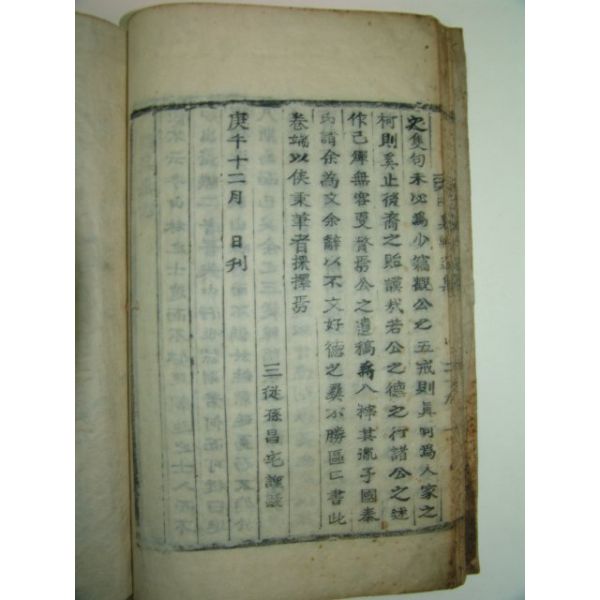 之隻句未必爲少篇觀公之五戒則眞可爲人家之
柯則奚止後裔之貽謨哉若公之德之行諸公之述
作已備無容更贅焉公之遺稿將入梓其胤子國泰
氏請余爲文余辭以不文好德之彛不勝區區書此
卷端以俟秉筆者採擇焉
三從孫昌宅謹跋
庚午十二月 日刊